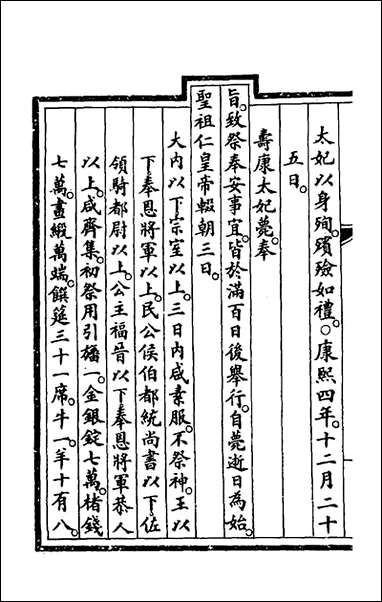 太妃以身殉。殯殮如禮。○康熙四年。十二月二十
五日。
壽康太妃薨。奉
旨。致祭奉安事宜。皆於滿百日後舉行。自薨逝日為始。
聖祖仁皇帝輟朝三日。
大內以下。宗室以上。三日內咸素服。不祭神。王以
下。奉恩將軍以上。民公侯伯都統尚書以下。佐
領騎都尉以上。公主福晉以下。奉恩將軍恭人
以上。咸齊集。初祭用引旛一。金銀錠七萬。楮錢
七萬。畫緞萬端。饌筵三十一席。牛一。羊十有八。